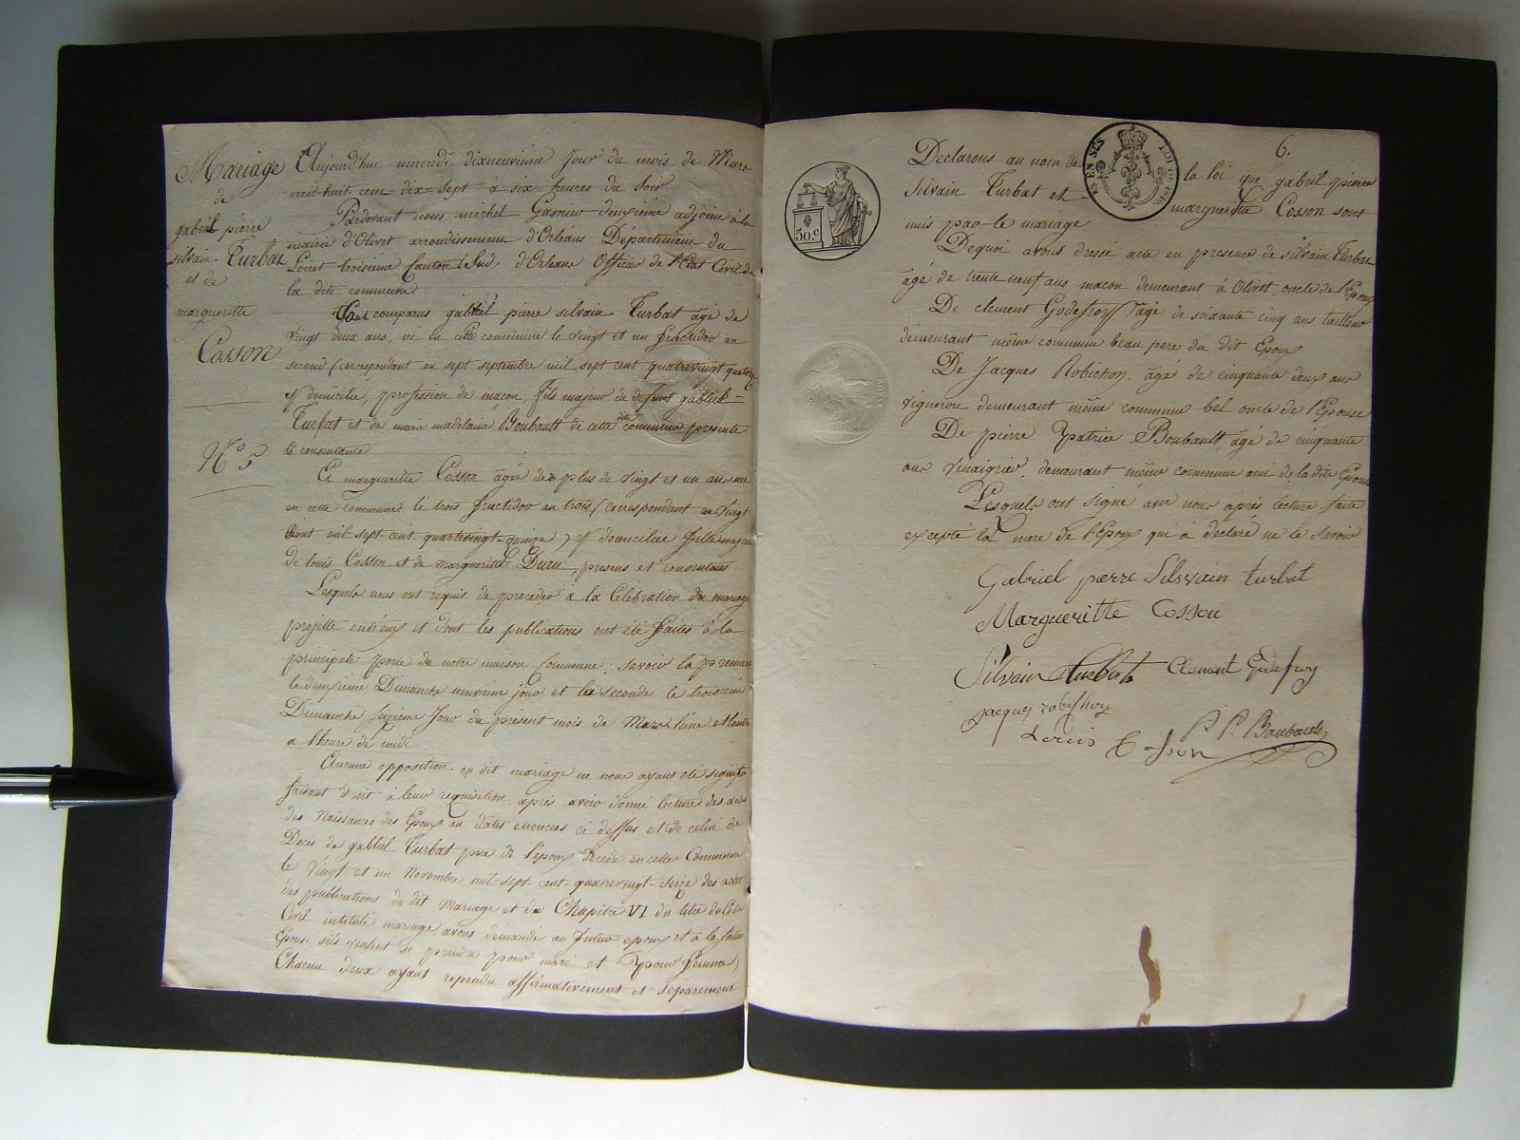 Mariage
de
gabriel pierre
silvain Turbat
et de
marguerite
Cosson
N° 5
Aujourd'hui mercredi dixneuvieme jour du mois de Mars
mil huit cent dix-sept à six heures du soir
Pardevant nous michel deuxieme adjoint à la
mairie d'Olivet arrondissement d'Orléans Département du
Loiret troisieme Canton Sud d'Orleans Officier de l'Etat Civil de
la dite commune
Sont comparus gabriel pierre silvain Turbat âgé de
vingt deux ans, né en cette commune le vingt et un fructidor an
second (correspondant au sept septembre mil sept cent quatrevingt quatorze
y domicilié, profession de macon, fils majeur de feu gabriel
Turbat et de marie madelaine Boubault de cette commune présente
et consentante
Et marguerite Cosson âgée de plus de vingt et un ans née
en cette commune le trois fructidor an trois (correspondant au vingt
Aout mil sept cent quatrevingt-quinze) y domiciliée fille majeure
de louis Cosson et de marguerite Duru, présens et consentans
Lesquels nous ont requis de proceder à la Célébration du mariage
projetté entr'eux et dont les publications ont été faites à la
principale porte de notre maison Commune; savoir la premiere
le deuxième Dimanche neuvieme jour et la seconde le troisieme
Dimanche seizieme Jour du présent mois de Mars l'une et l'autre
a l'heure de midi
Aucune opposition au dit mariage ne nous ayant été signifiée
faisant droit à leur requisition, après avoir donné lecture des actes
des Naissances des Epoux au dates énoncées cì dessus et de celui de
Deces de gabriel Turbat pere de l'epoux décédé en cette Commune
le vingt et un Novembre mil sept cent quatrevingt-seize des actes
des publications du dit Mariage et du Chapitre VI du titre du Code
Civil intitulé mariage, avons demandé au futur epoux et à la future
épouse s'ils veulent se prendre pour mari et pour femme,
Chacun d'eux ayant repondu affirmativement et séparement
6.
Declarons au nom de la loi que gabriel pierre
Silvain Turbat et marguerite Cosson sont
unis par le mariage
50.c
Dequoi avons dressé acte en presence de silvain Turbat
âgé de trente neuf ans macon demeurant à Olivet oncle de l'Epoux
De clement Godefroy âgé de soixante cinq ans tailleur
demeurant même commune beau pere du dit Epoux
De Jacques Robichon âgé de cinquante deux ans
vigneron demeurant même commune bel oncle de l'Epouse
De pierre patrice Boubault âgé de cinquante
ans vinaigrier demeurant même commune ami de la dite Epouse
Lesquels ont signé avec nous après lecture faite
excepté la mere de l'Epoux qui à déclaré ne le savoir
Gabriel pierre Silsvain turbat
Margueritte Cosson
Silvain turbat Clement Godefroy
jacques robichon
P. P. Boubault
Louis Cosson